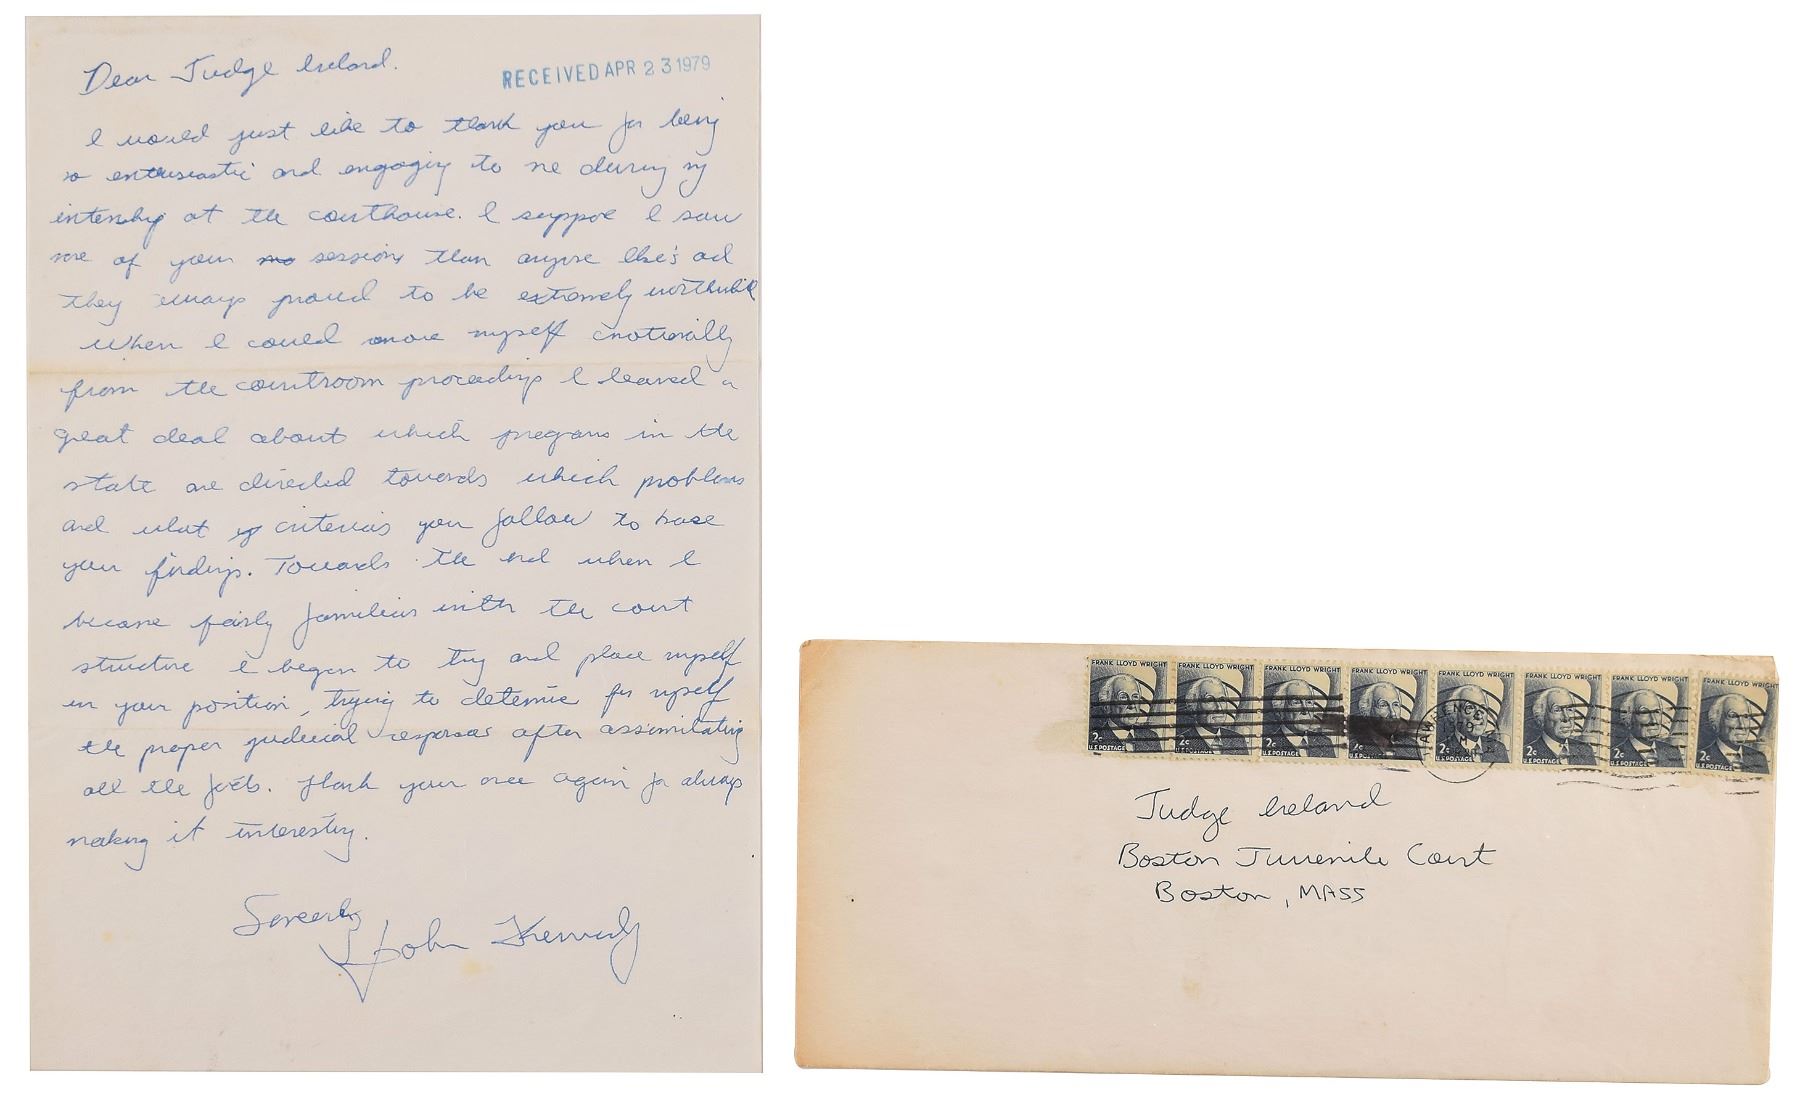 Dear Judge Ireland.
RECEIVED APR 23 1979
I would just like to thank you for being
so enthusiastic and engaging to me during my
internship at the courthouse. I suppose I saw
more of your sessions than anyone else's and
they always proved to be extremely worthwhile
When I could remove myself emotionally
from the courtroom proceedings I learned a
great deal about which programs in the
state are directed towards which problems
and what criterias you follow to base
your findings. Towards the end when I
became fairly familiar with the court
structure I began to try and place myself
in your position, trying to determine for myself
the proper judicial responses after assimilating
all the facts. Thank your once again for always
making it interesting.
Sincerely
John Kennedy
FRANK LLOYD WRIGHT FRANK LLOYD WRIGHT FRANK LLOYD WRIGHT FRANK LLOYD WRIGHT FRANK LLOYD WRIGHT FRANK LLOYD WRIGHT FRANK LLOYD WRIGHT FRANK LLOYD WRIGHT
2c 2c 2c 2c 2c 2c 2c 2c
U.S. POSTAGE U.S. POSTAGE U.S. POSTAGE U.S. POSTAGE U.S. POSTAGE U.S. POSTAGE U.S. POSTAGE U.S. POSTAGE
1979
Judge Ireland
Boston Juvenile Court
Boston, MASS